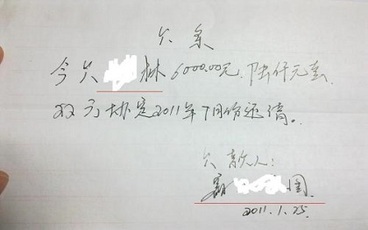 欠条
今欠 林6000.00元 陆仟元整
双方协定2011年7月份还清。
欠款人:
国
2011.1.25